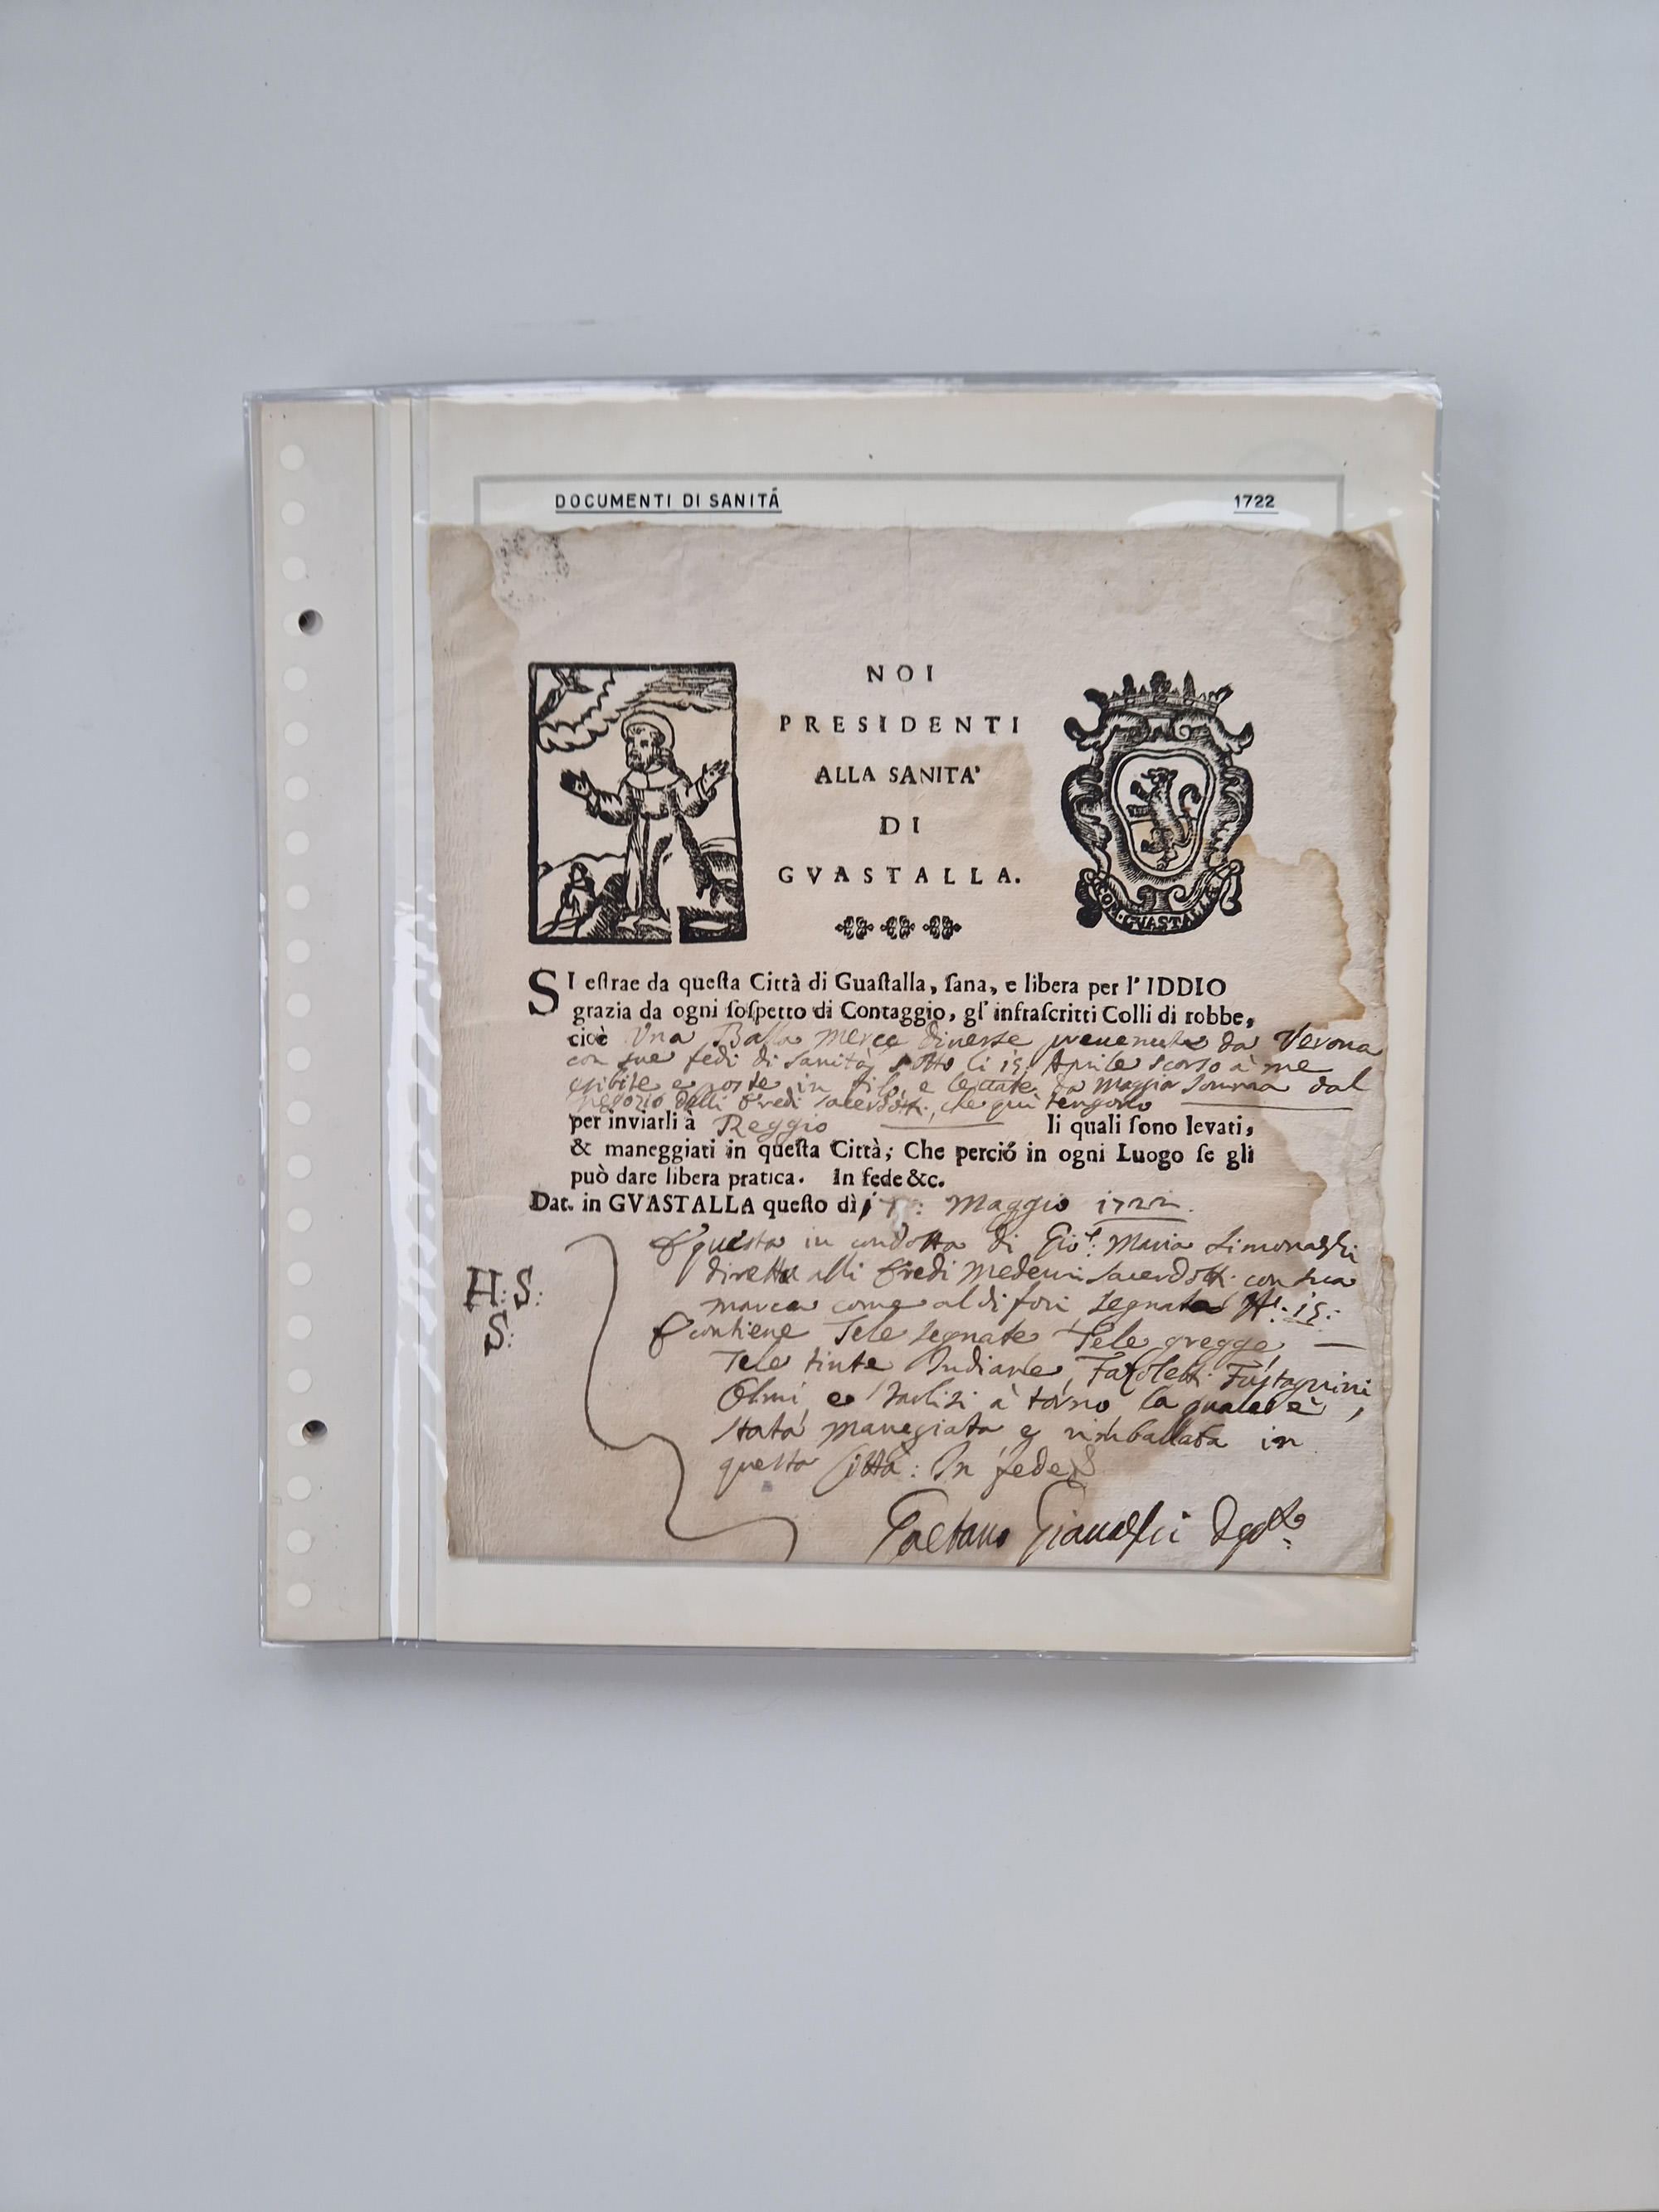 DOCUMENTI DI SANITÁ
1722
NOI
PRESIDENTI
ALLA SANITA'
DI
GVASTALLA.
COM. GVASTALLÆ
SI eſtrae da queſta Città di Guaſtalla, ſana, e libera per l' IDDIO
grazia da ogni ſoſpetto di Contaggio, gl' infraſcritti Colli di robbe,
cioè Una Balla Merce diverse provenute da Verona
con sue fedi di sanità sotto li 15 Aprile scorso à me
esibite e poste in filo, e levate da Maggior somma dal
negozio delli Eredi Sacerdotti, che quì tengono
per inviarli à Reggio li quali ſono levati,
& maneggiati in queſta Città; Che perciò in ogni Luogo ſe gli
può dare libera pratica. In fede &c.
Dat. in GVASTALLA queſto dì : Maggio 1722.
E questa in condotta di Gio: Maria Simonazzi
diretta alli Eredi Medemi Sacerdotti con sua
marca come al di fori segnata N: 15:
E contiene Tele segnate Tele gregge
Tele tinte Indiane, Fazoletti Fustagnini
Olmi, e à torno la quale è
stata manegiata e rimballata in
questa Città: In fede
H: S:
S:
Gaetano